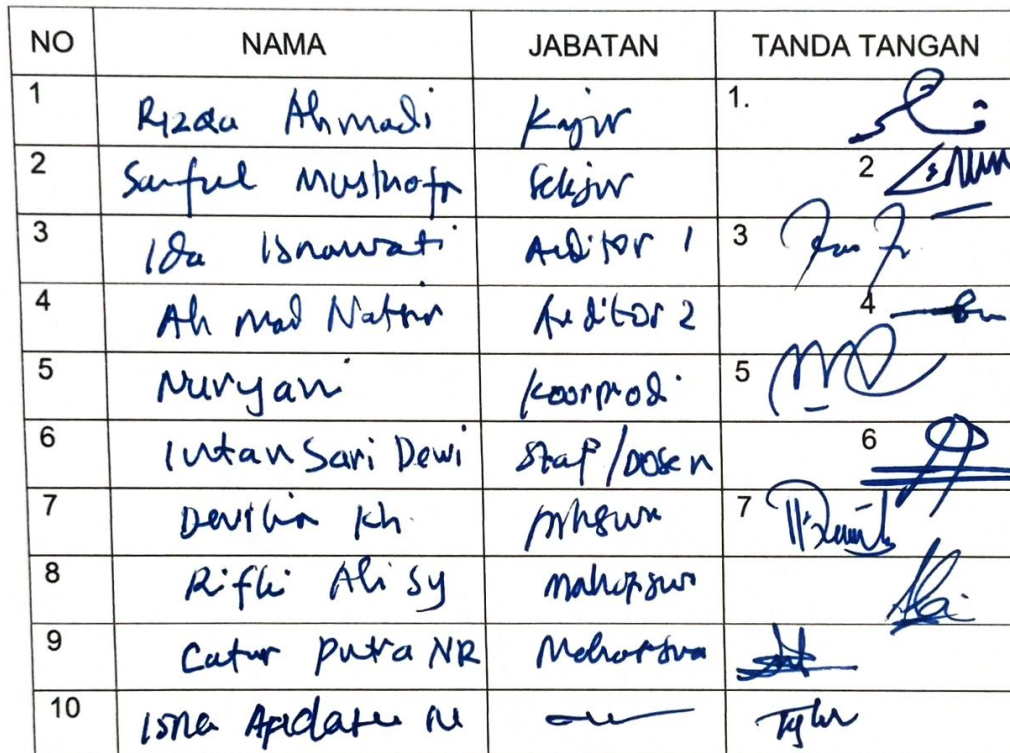 NO NAMA JABATAN TANDA TANGAN
1 Rizqa Ahmadi Kajur 1.
2 Saiful Mustofa Sekjur 2
3 Ida Isnawati Auditor 1 3
4 Ahmad Natsir Auditor 2 4
5 Nuryani Koorprodi 5
6 Intan Sari Dewi Staf/Dosen 6
7 Devilia Kh. 7
8 Rifki Ali Sy Mahasiswa
9 Catur Putra NR Mahasiswa
10 Isna